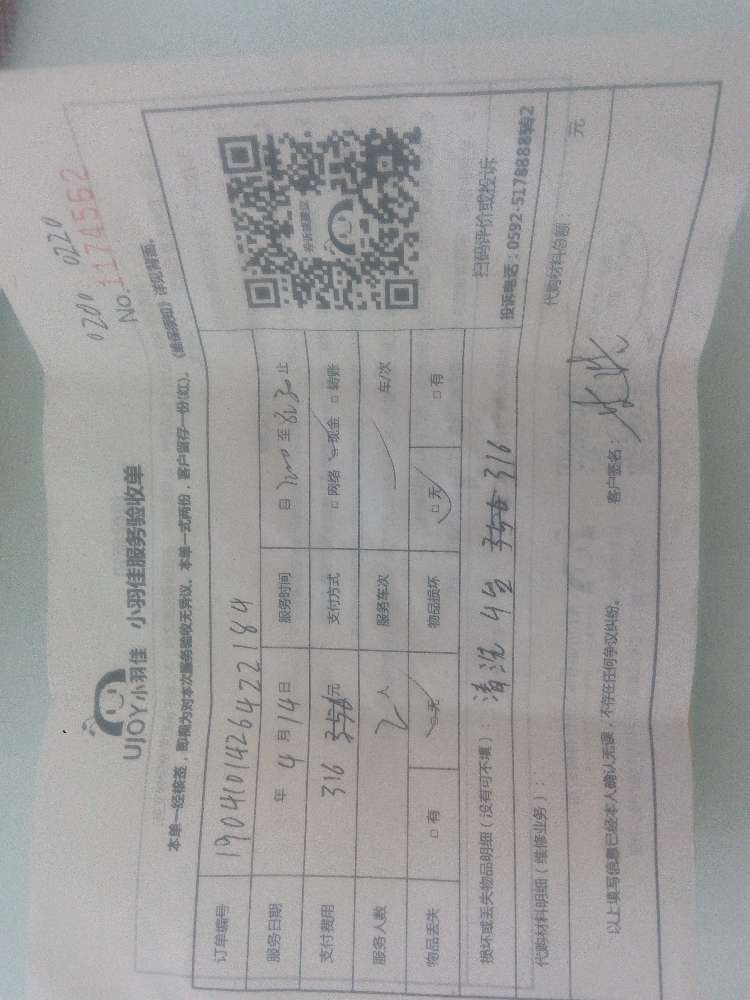 0200 0220
No.1174562
UJOY小羽佳 小羽佳服务验收单
本单一经核签，即视为对本次服务验收无异议。本单一式两份，客户留存一份(红)。《维保须知》详见背面。
订单编号 19041014264422184
服务日期 年 4 月 14 日 服务时间 自 至 止
支付费用 316 元 支付方式 □ 网络 □ 现金 □ 转账
服务人数 2 人 服务车次 车/次
物品丢失 □ 有 □ 无 物品损坏 □ 无 □ 有
扫码评价或投诉
投诉电话：0592-5178888转2
损坏或丢失物品明细（没有可不填）： 清洗 4台 316
代购材料明细（维修业务）： 代购材料总额： 元
以上填写信息已经本人确认无误，不存在任何争议纠纷。 客户签名：